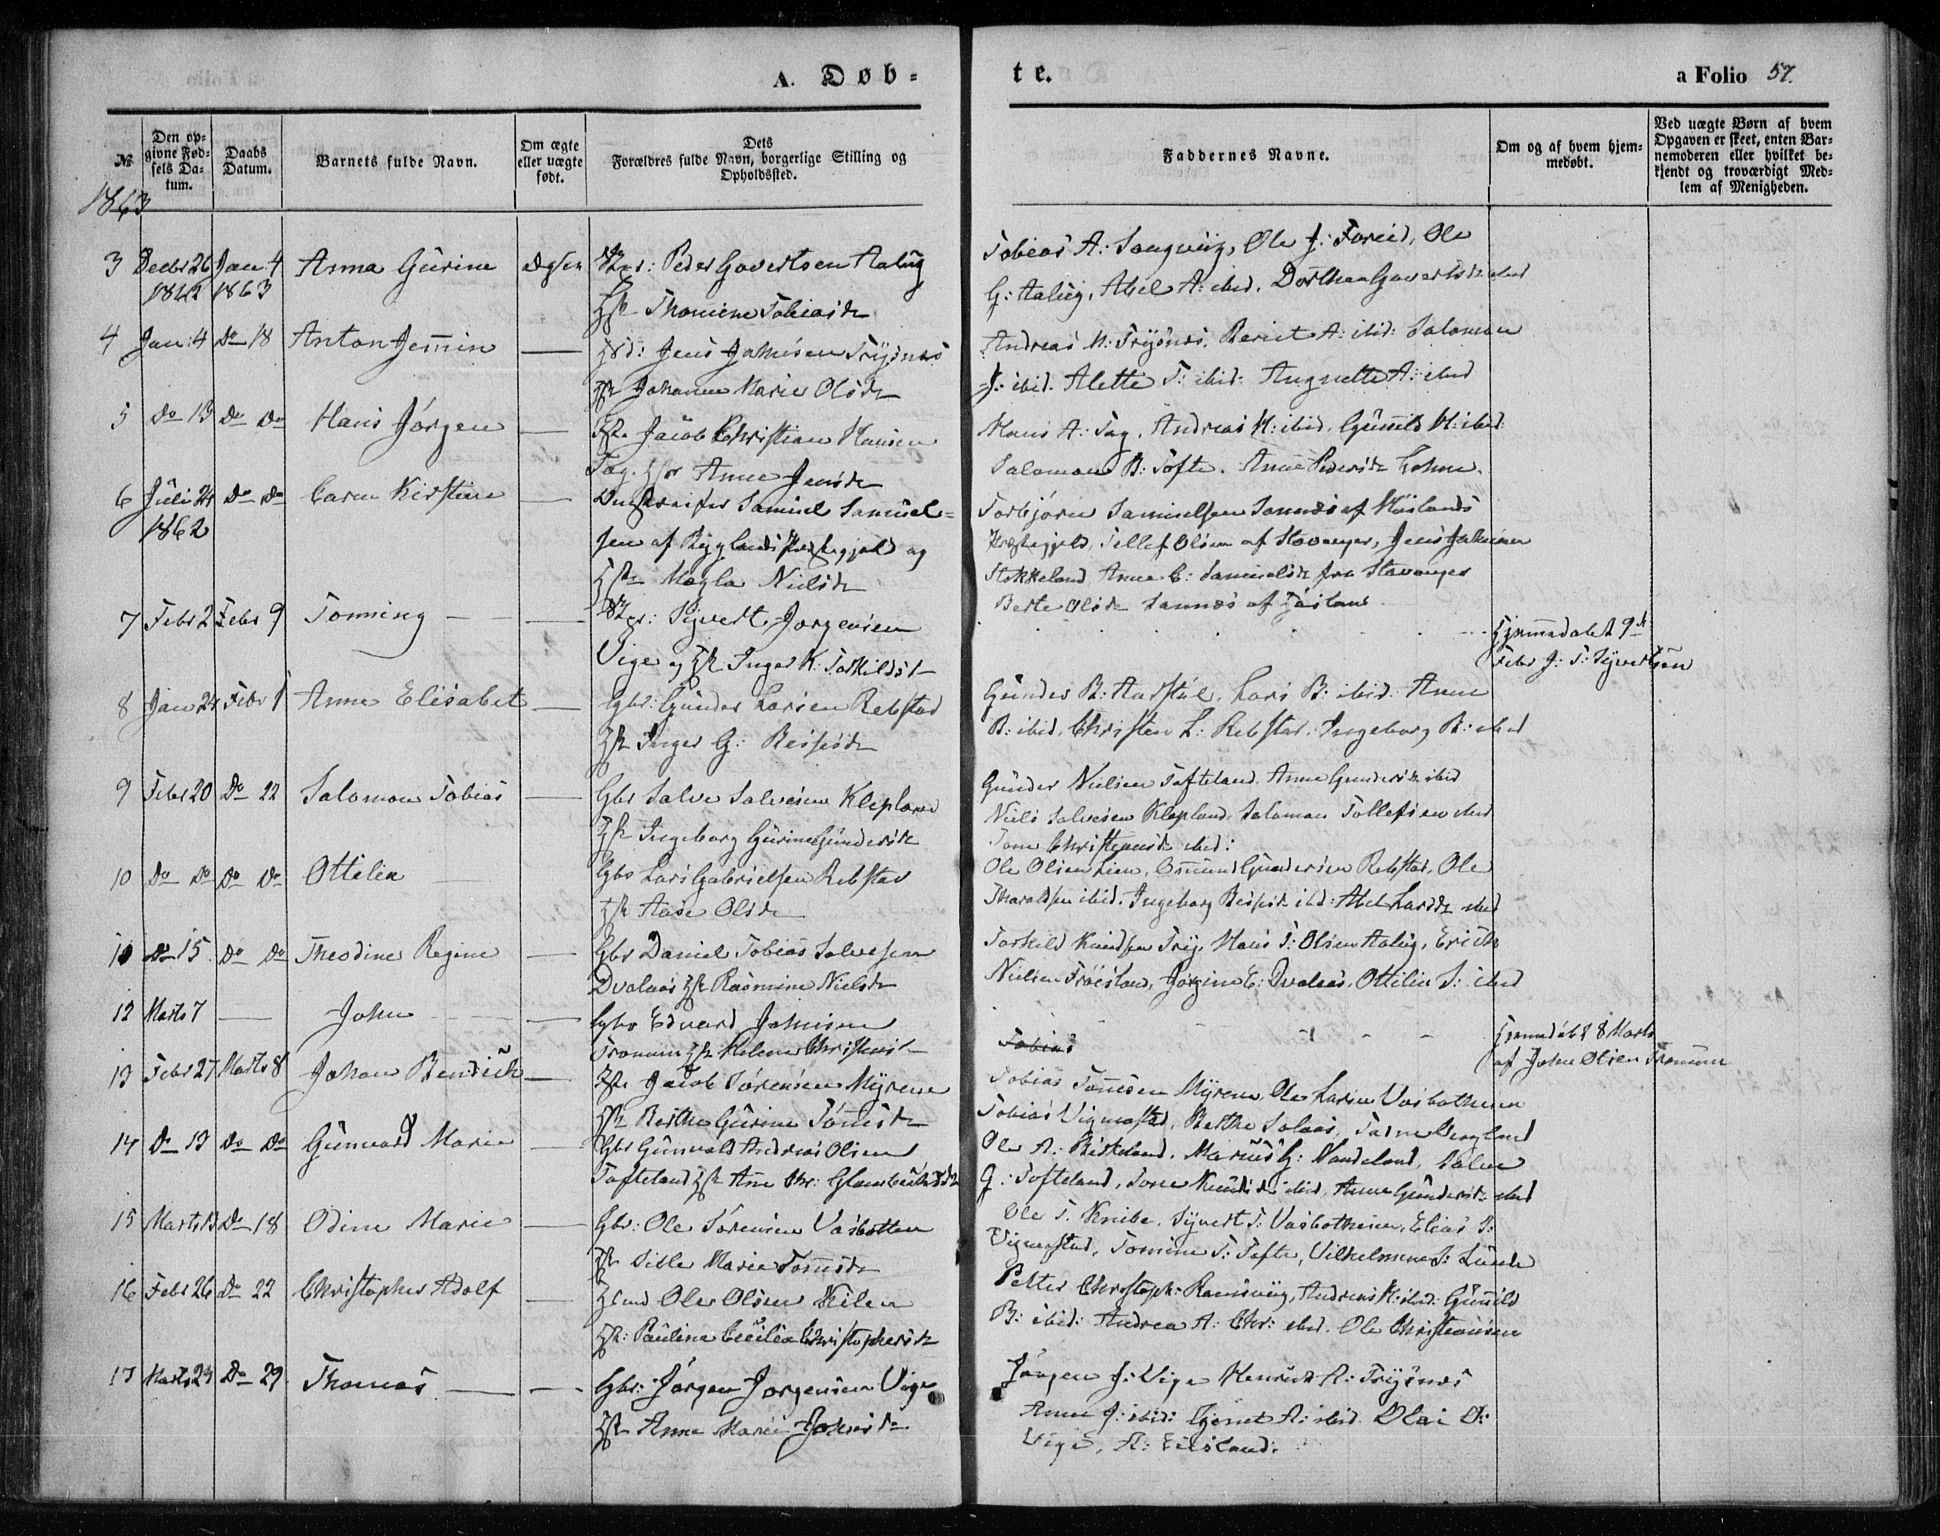 A. Døb-
te.
a Folio 57.
№
Den op-
givne Fød-
sels Da-
tum.
Daabs
Datum.
Barnets fulde Navn.
Om ægte
eller uægte
født.
Dets
Forældres fulde Navn, borgerlige Stilling og
Opholdssted.
Faddernes Navne.
Om og af hvem hjem-
medøbt.
Ved uægte Børn af hvem
Opgaven er skeet, enten Bar-
nemoderen eller hvilket be-
kjendt og troværdigt Med-
lem af Menigheden.
1863
3 Decbr 26 Jan: 4 Anna Gurine Peder Govertsen Aalug
1862 1863
Thomine Tobiasdr
Tobias A: Songvüg, Ole J: Foreid, Ole
G: Aalug, Abel A: ibid, Dorthea Govertsdr ibid
4 Jan: 4 Do 18 Anton Jemin Jens Jahnsen Trysnæs
Johanne Marie Olsdr
Andreas M: Trysnæs, Beriet A: ibid: Salomon
J: ibid. Alette T: ibid: Augnette A: ibid
5 Do 13 Do Do Hans Jørgen Jacob Christian Hansen
Tag. Anne Jensdr
Hans A: Tag, Andreas H: ibid, Gunild H: ibid:
Salomon B: Tofte. Anne Pedersdr Lohne.
6 Juli 24 Do Do Caren Kirstine Samuel Samuel-
1862
sen af Præstegjeld og
Magla Nielsdr
Torbjørn Samuelsen Sannæs af Høilands
Præstegjeld, Tellef Olsen af Stavanger, Jens Jahnsen
Stokkeland Anne C: Samuelsdr fra Stavanger
Berte Olsdr Sannæs af Høiland
7 Febr 2 Febr 9 Tonning Gbr: Syvert Jørgensen
Vige og Inger K: Torkildsd
Hjemmedøbt 9de
Febr J: S: Syvertsen
8 Jan 24 Febr 1 Anne Elisabet Gbr: Gunder Larsen Rebstad
Inger G: Beintsdr
Gunder B: Aarstøl, Lars B: ibid: Anne
B: ibid, Christen L: Rebstad. Ingeborg B: ibid
9 Febr 20 Do 22 Salomon Tobias Gbr Salve Salvesen Klepland
Ingeborg Gurine Gundersdr
Gunder Nielsen Tofteland, Anne Gundersdr ibid
Niels Salvesen Klepland Salomon Tollefsen ibid
Tone Christensdr ibid:
10 Do Do Do Do Ottilea Gbr Lars Gabrielsen Rebstad
Aase Olsdr
Ole Olsen Lien, Gundersen Rebstad, Ole
Haraldsen ibid. Ingeborg ibid: Abel Larsdr ibid
11 Do 15 Do Do Theodine Regine Gbr Daniel Tobias Salvesen
Dvalaas Rasmine Nielsdr
Torkild Knudsen Try, Hans T: Olsen Aalug, Erich
Nielsen Frøisland, Jørgine E: Dvalaas. Ottilia S: ibid
12 Marts 7 John Gbr Edvard Johnsen
Tromum Helene Christensd
Tobias
Hjemmedøbt 8 Marts
af John Olsen Tromum
13 Febr 27 Marts 8 Johan Bendich Jacob Sørensen Myrene
Berthe Gurine Tønnesdr
Tobias Tønnesen Myrene Ole Larsen Vasbothenen
Tobias Vigmostad, Berthe Solaas,
14 Do 13 Do Do Gunvald Marie Gbr Gunvald Andreas Olsen
Tofteland Ane Chr:
Ole A: Birkeland, Marius G: Nandeland, Salve
G: Tofteland, Tone Knudsdr ibid, Anne Gundersdr ibid
15 Marts 13 Do 18 Odine Marie Gbr: Ole Sørensen Vasbotten
Sible Marie Tønnesdr
Ole T. Knibe. Syvert T: Vasbothenen, Elias S:
Vigmostad, Tomine T: Tofte, Vilhelmine S: Lunde
16 Febr 26 Do 22 Christopher Adolf Ole Olsen Kilen
Pauline Cecilia Christophersdr
Petter Christoph: Ramsvüg, Andreas K: ibid: Gunild
B: ibid: Andrea A: Chr: ibid. Ole Christensen
17 Marts 24 Do 29 Thomas Gbr: Jørgen Jørgensen Vige
Anne Marie Johnsdr
Jørgen J: Vige Henrich A: Trysnæs
Anne J: ibid: A: ibid Olai O:
Vige, A: Eilsland: